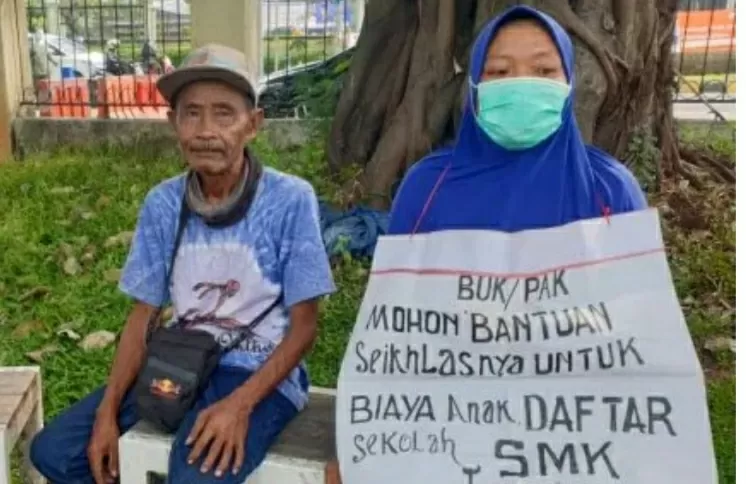 BUK/PAK
MOHON BANTUAN
SeikhLasnya UNTUK
BIAYA Anak DAFTAR
SEKOLAH SMK
Red Bull